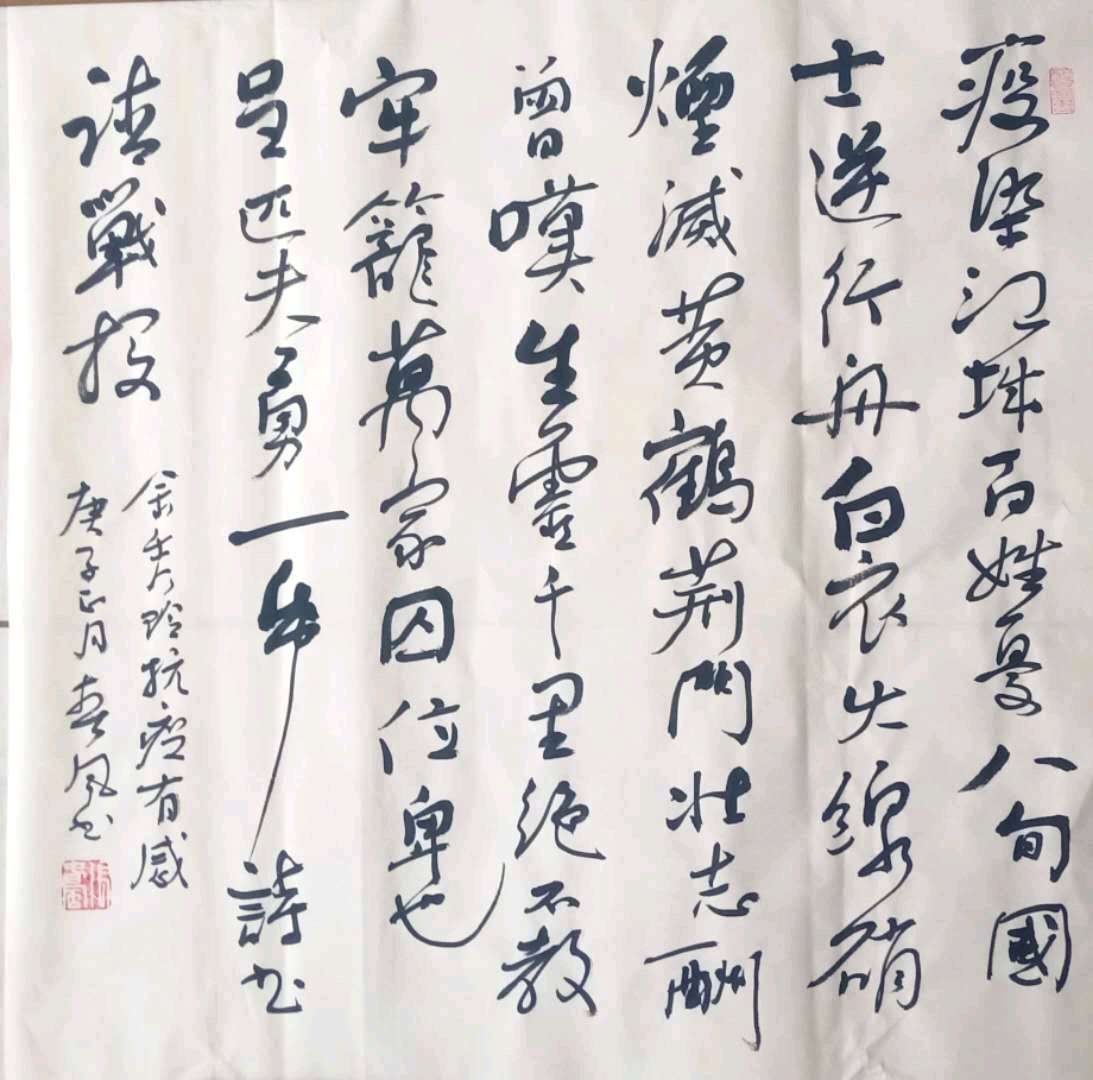 疫染江城百姓憂八旬國
士逆行舟白衣火線硝
煙滅黃鶴荊門壯志酬
曾嘆生靈千里絕不教
牢籠萬家囚位卑也
呈匹夫勇一紙詩書
請戰投
余秀玲抗疫有感
庚子正月春風書